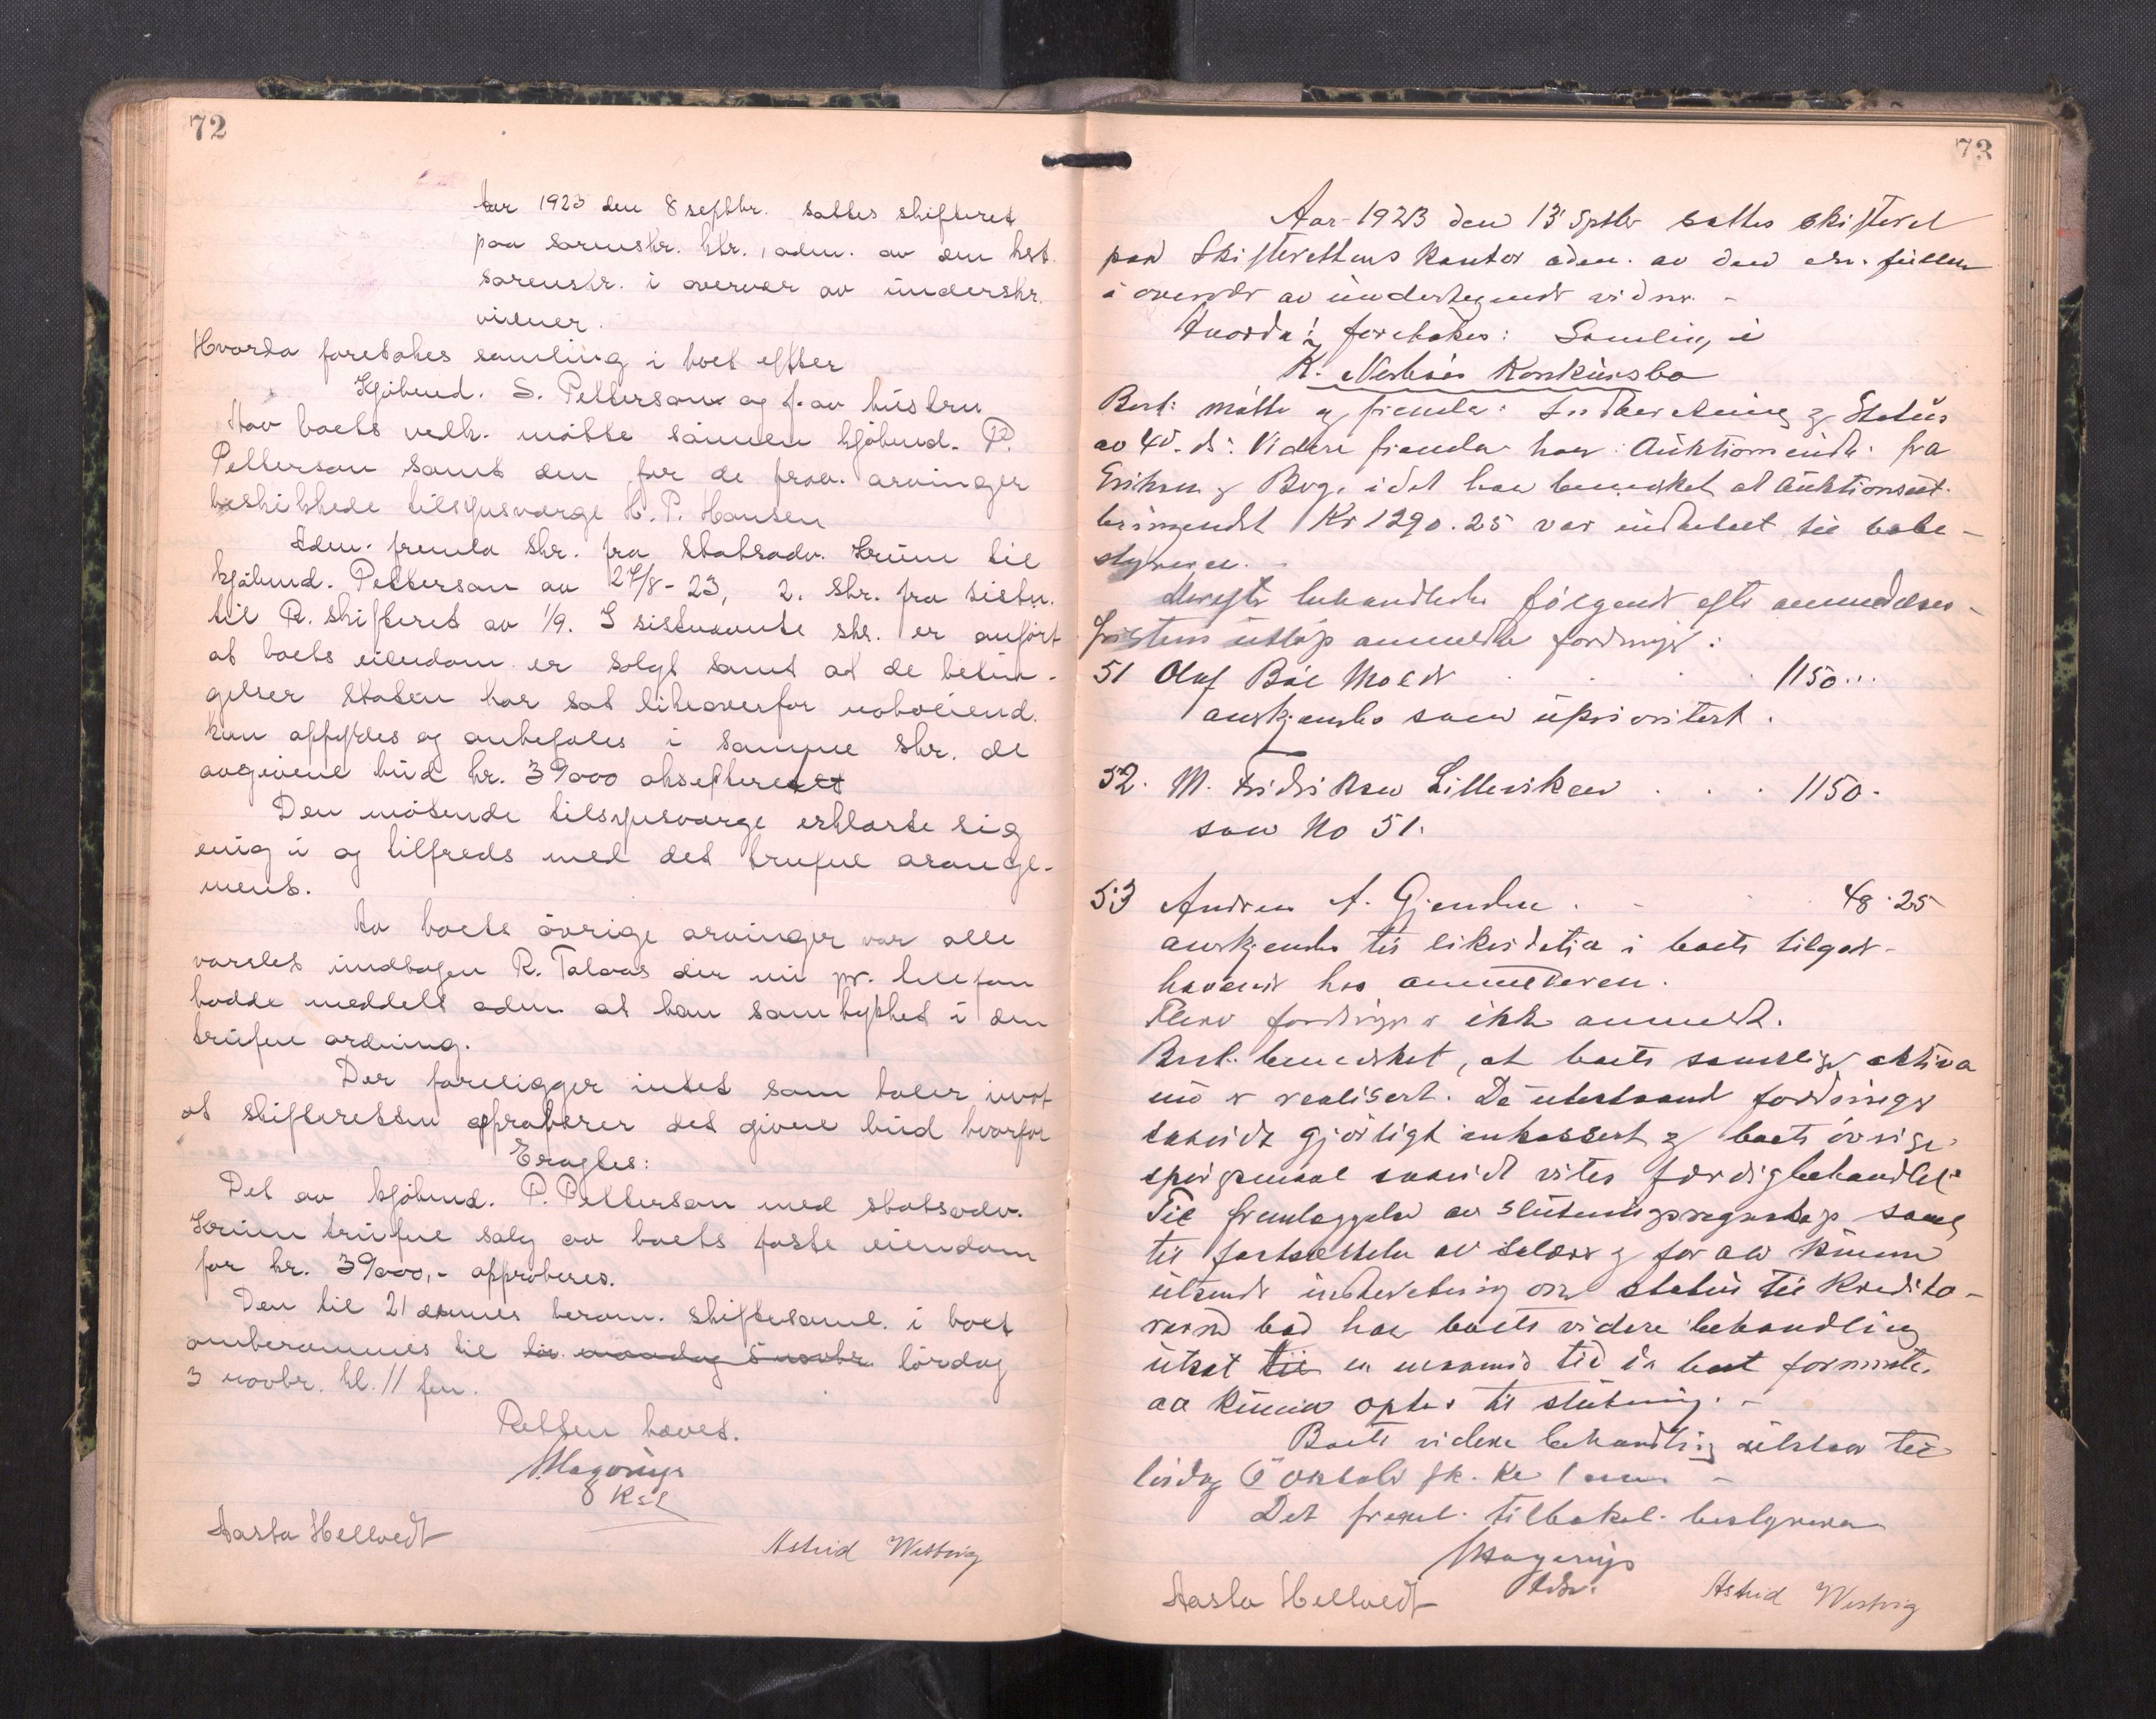 72
Aar 1923 den 8 septbr. sattes skifteret
paa sorenskr. ktr., adm. av den kst.
sorenskr. i overvær av underskr.
vidner.
Hvorda foretokes samling i boet efter
Kjøbmd. S. Petterson og f. av hustru
Hav boets vedk. møtte sønnen kjøbmd. P.
Petterson samt den for de frav. arvinger
beskikkede tilsynsværge H. P. Hansen
Adm. fremla skr. fra statsadv. Krüm til
kjøbmd. Petterson av 27/8-23, 2. skr. fra sistn.
til R. skifteret av 1/9. I sistnævnte skr. er anført
at boets eiendom er solgt samt at de betin-
gelser staten har sat likeoverfor naboeiend.
kun opfyldes og anbefales i samme skr. de
avgivene bud kr. 39000 aksepteret
Den møtende tilsynsværge erklærte sig
enig i og tilfreds med det trufne arange-
ment.
Av boets øvrige arvinger var alle
varslet undtagen R. Talaas der nu pr. telefon
hadde meddelt adm. at han samtykket i den
trufne ordning.
Der foreligger intet som taler imot
at skifteretten approberer det givene bud hvorfor
Eragtes:
Det av kjøbmd. P. Petterson med statsadv.
Krüm trufne salg av boets faste eiendom
for kr. 39000,- approberes.
Den til 21 dennes beram. skiftesaml. i boet
omberammes til tir. mandag 5 novbr. lørdag
3 novbr. kl. 11 fm.
Retten hævet.
Aasta Hellvedt
Astrid Westvig
73
Aar 1923 den 13 Sptbr sattes skifteret
paa Skifterettens kontor adm. av den
i overvær av undertegnede vidner. -
Hvorda foretokes: Samling i
K. Konkursbo
Best. møtte og fremla: Indberetning og Status
av ds. Videre fremla han Auktions fra
Eriksen & Bog, idet han bemerket at Auktionsut-
bringendet Kr 1290.25 var indbetalt til bobe-
styreren.
Derefter behandledes følgende efter anmeldelses-
fristens utløp anmeldte fordringer:
51 Olaf Molde . . . 1150...
anerkjendes som uprioritert.
52. M. Fridriksen Lilleviken . . . 1150.
som No 51.
53 Andreas A. Gjendem . . 48.25
anerkjendes til likvidation i boets tilgode-
havende hos anmelderen.
Flere fordringer er ikke anmeldt.
Best. bemerket, at boets samtlige aktiva
nu er realisert. De utestaaende fordringer
saavidt gjørligt inkassert og boets øvrige
spørgsmaal saavidt vites færdigbehandlet.
Til fremlæggelse av slutningsregnskap samt
til fastsættelse av salærer og for at kunne
utsende indberetning om status til Kredito-
rerne bad han boets videre behandling
utsat til en maaned tid da boet formentl.
at kunne optas til slutning. -
Boets videre behandling utstaar til
lørdag 6 oktober fk. kl 1 em. -
Det freml. tilbakel. bestyreren
Aasta Hellvedt
Astrid Westvig